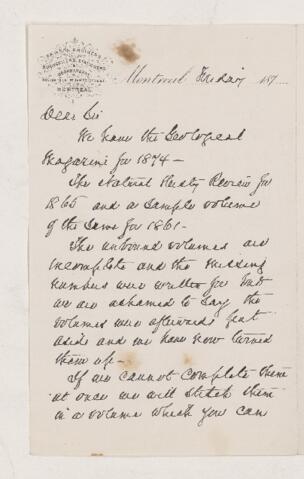 DAWSON BROTHERS
BOOKSELLERS, STATIONERS
MONTREAL
Montreal Friday 187....
Dear Sir
We have the Geological
Magazine for 1874 —
The Natural History Review for
1865 and a sample volume
of the same for 1861 —
The unbound volumes are
incomplete and the missing
numbers were written for but
we are ashamed to say the
volumes were afterwards put
aside and we have now turned
them up —
If we cannot complete them
at once we will stitch them
in a volume which you can